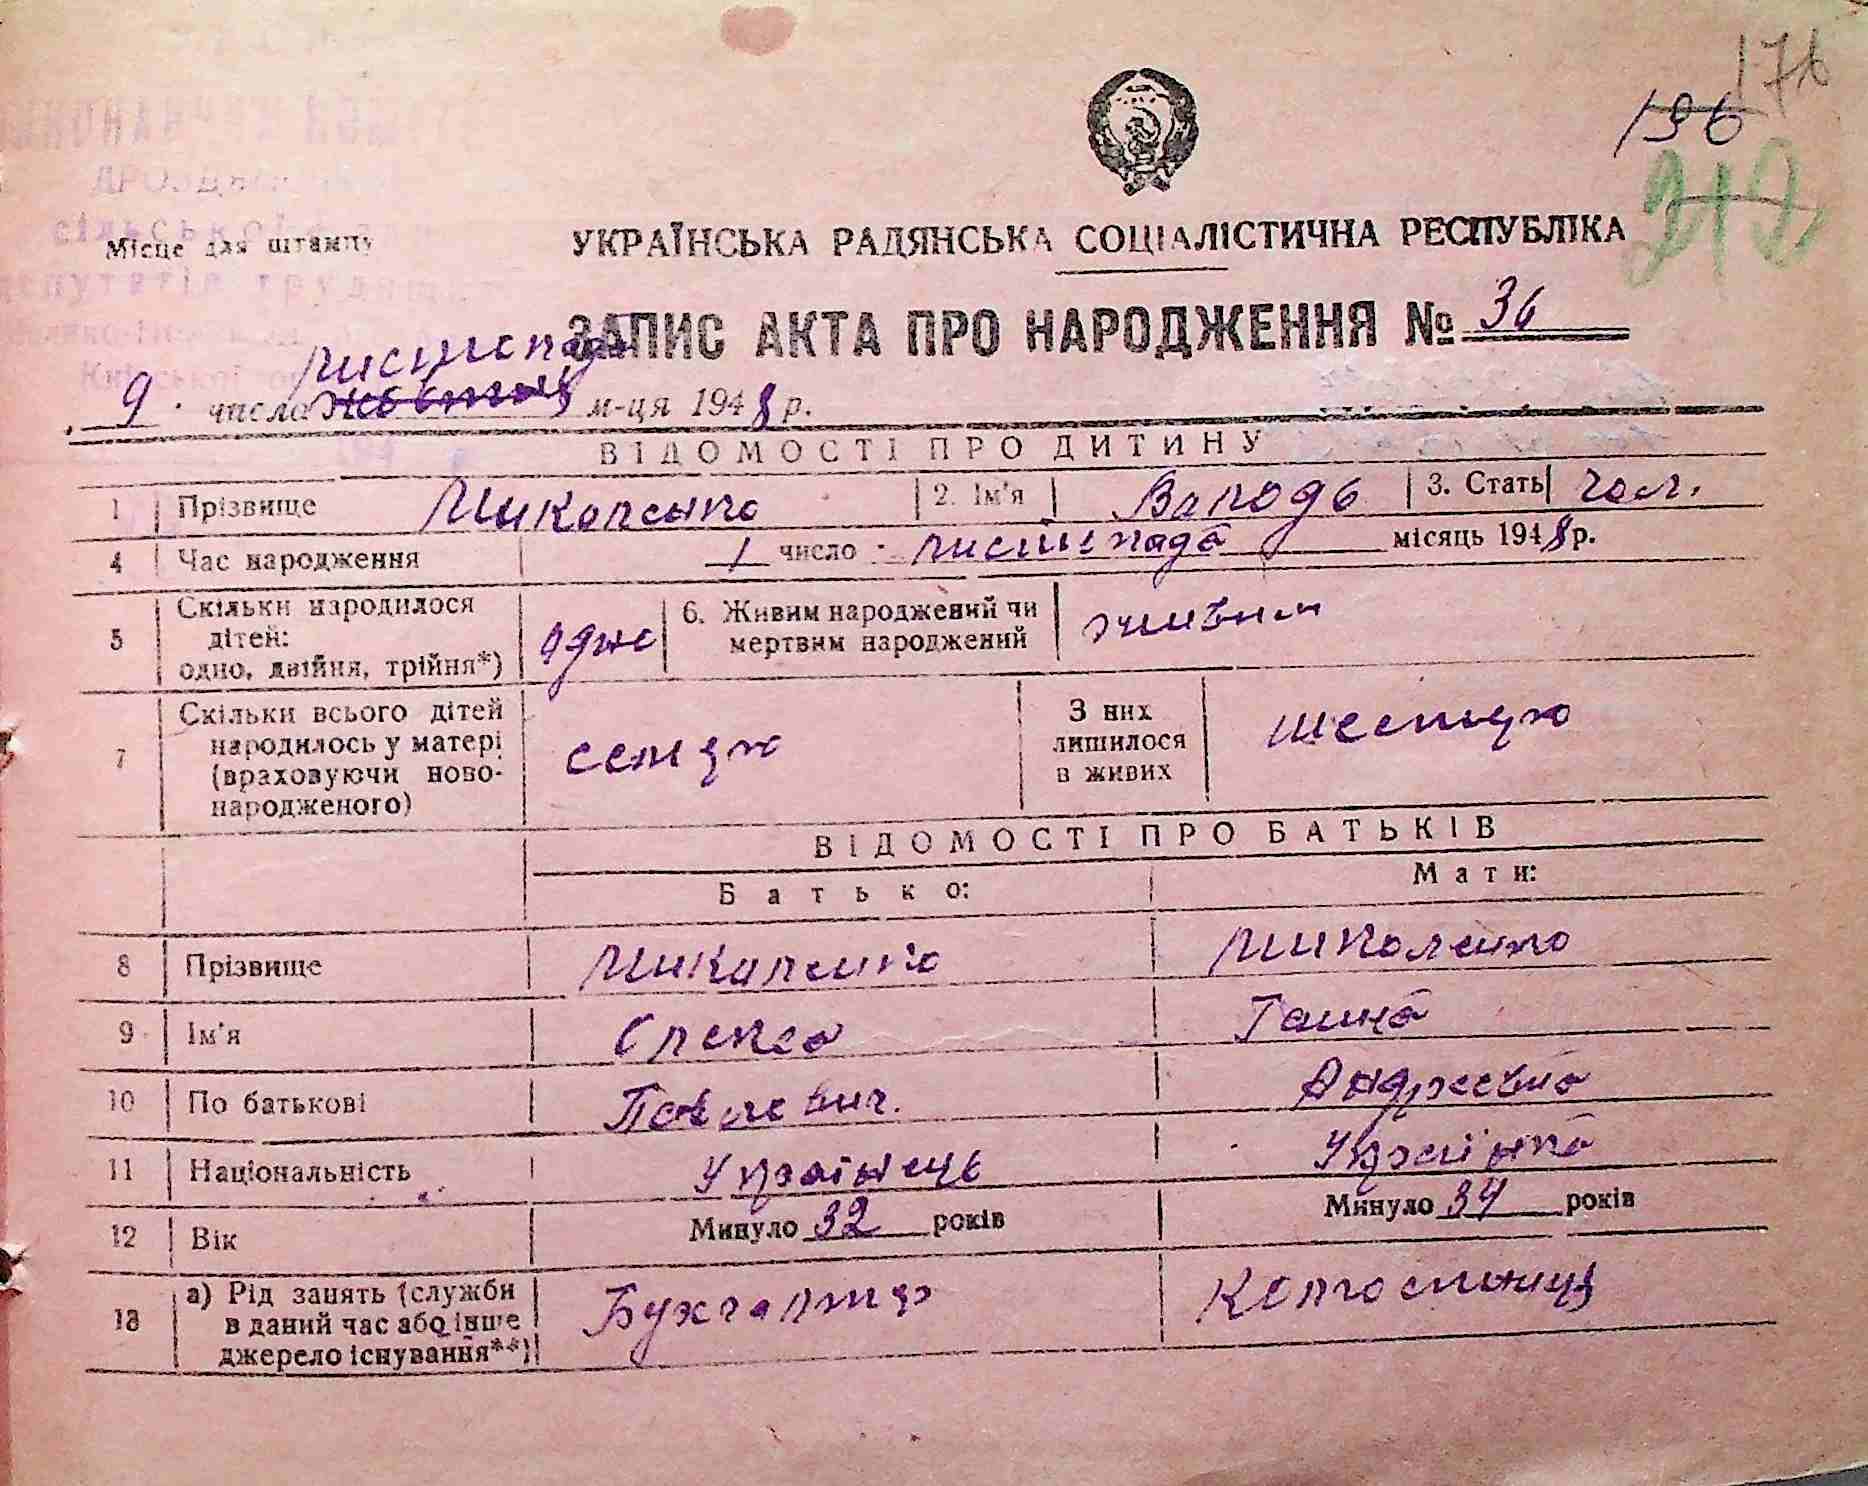 176
196
212
Місце для штампу
УКРАЇНСЬКА РАДЯНСЬКА СОЦІАЛІСТИЧНА РЕСПУБЛІКА
ЗАПИС АКТА ПРО НАРОДЖЕННЯ № 36
листопада
9 числа жовтня м-ця 1948 р.
ВІДОМОСТІ ПРО ДИТИНУ
1 Прізвище Миколенко 2. Ім'я Валодь 3. Стать чол.
4 Час народження 1 число листопада місяць 1948 р.
5 Скільки народилося дітей: одно, двійня, трійня*) одне 6. Живим народжений чи мертвим народжений живим
7 Скільки всього дітей народилось у матері (враховуючи новонародженого) семеро З них лишилося в живих шестеро
ВІДОМОСТІ ПРО БАТЬКІВ
Батько: Мати:
8 Прізвище Миколенко Миколенко
9 Ім'я Олекса Ганна
10 По батькові Павлович. Андреєвна
11 Національність Українець Українка
12 Вік Минуло 32 років Минуло 34 років
13 а) Рід занять (служби в даний час або інше джерело існування**) Бухгалтер Колгоспниця